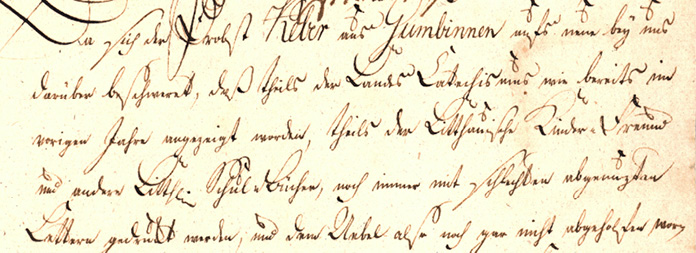 Da sich der Probst Keber aus Gumbinnen aufs neue bey uns
darüber beschweret, daß theils der Landes Catechismus wie bereits im
vorigen Jahre angezeigt worden, theils der Litthauische Kinder-Freund
und andere Litth. Schul-Bücher, noch immer mit schlechten abgenuzten
Lettern gedrukt werden, und dem Uebel also noch gar nicht abgeholfen wor-